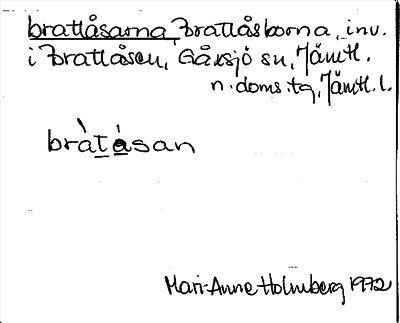 brattåsarna, Brattåsborna, inv.
i Brattåsen, Gåxsjö sn, Jämtl.
n. doms.tg, Jämtl. l.
bràtåsan
Mari-Anne Holmberg 1972